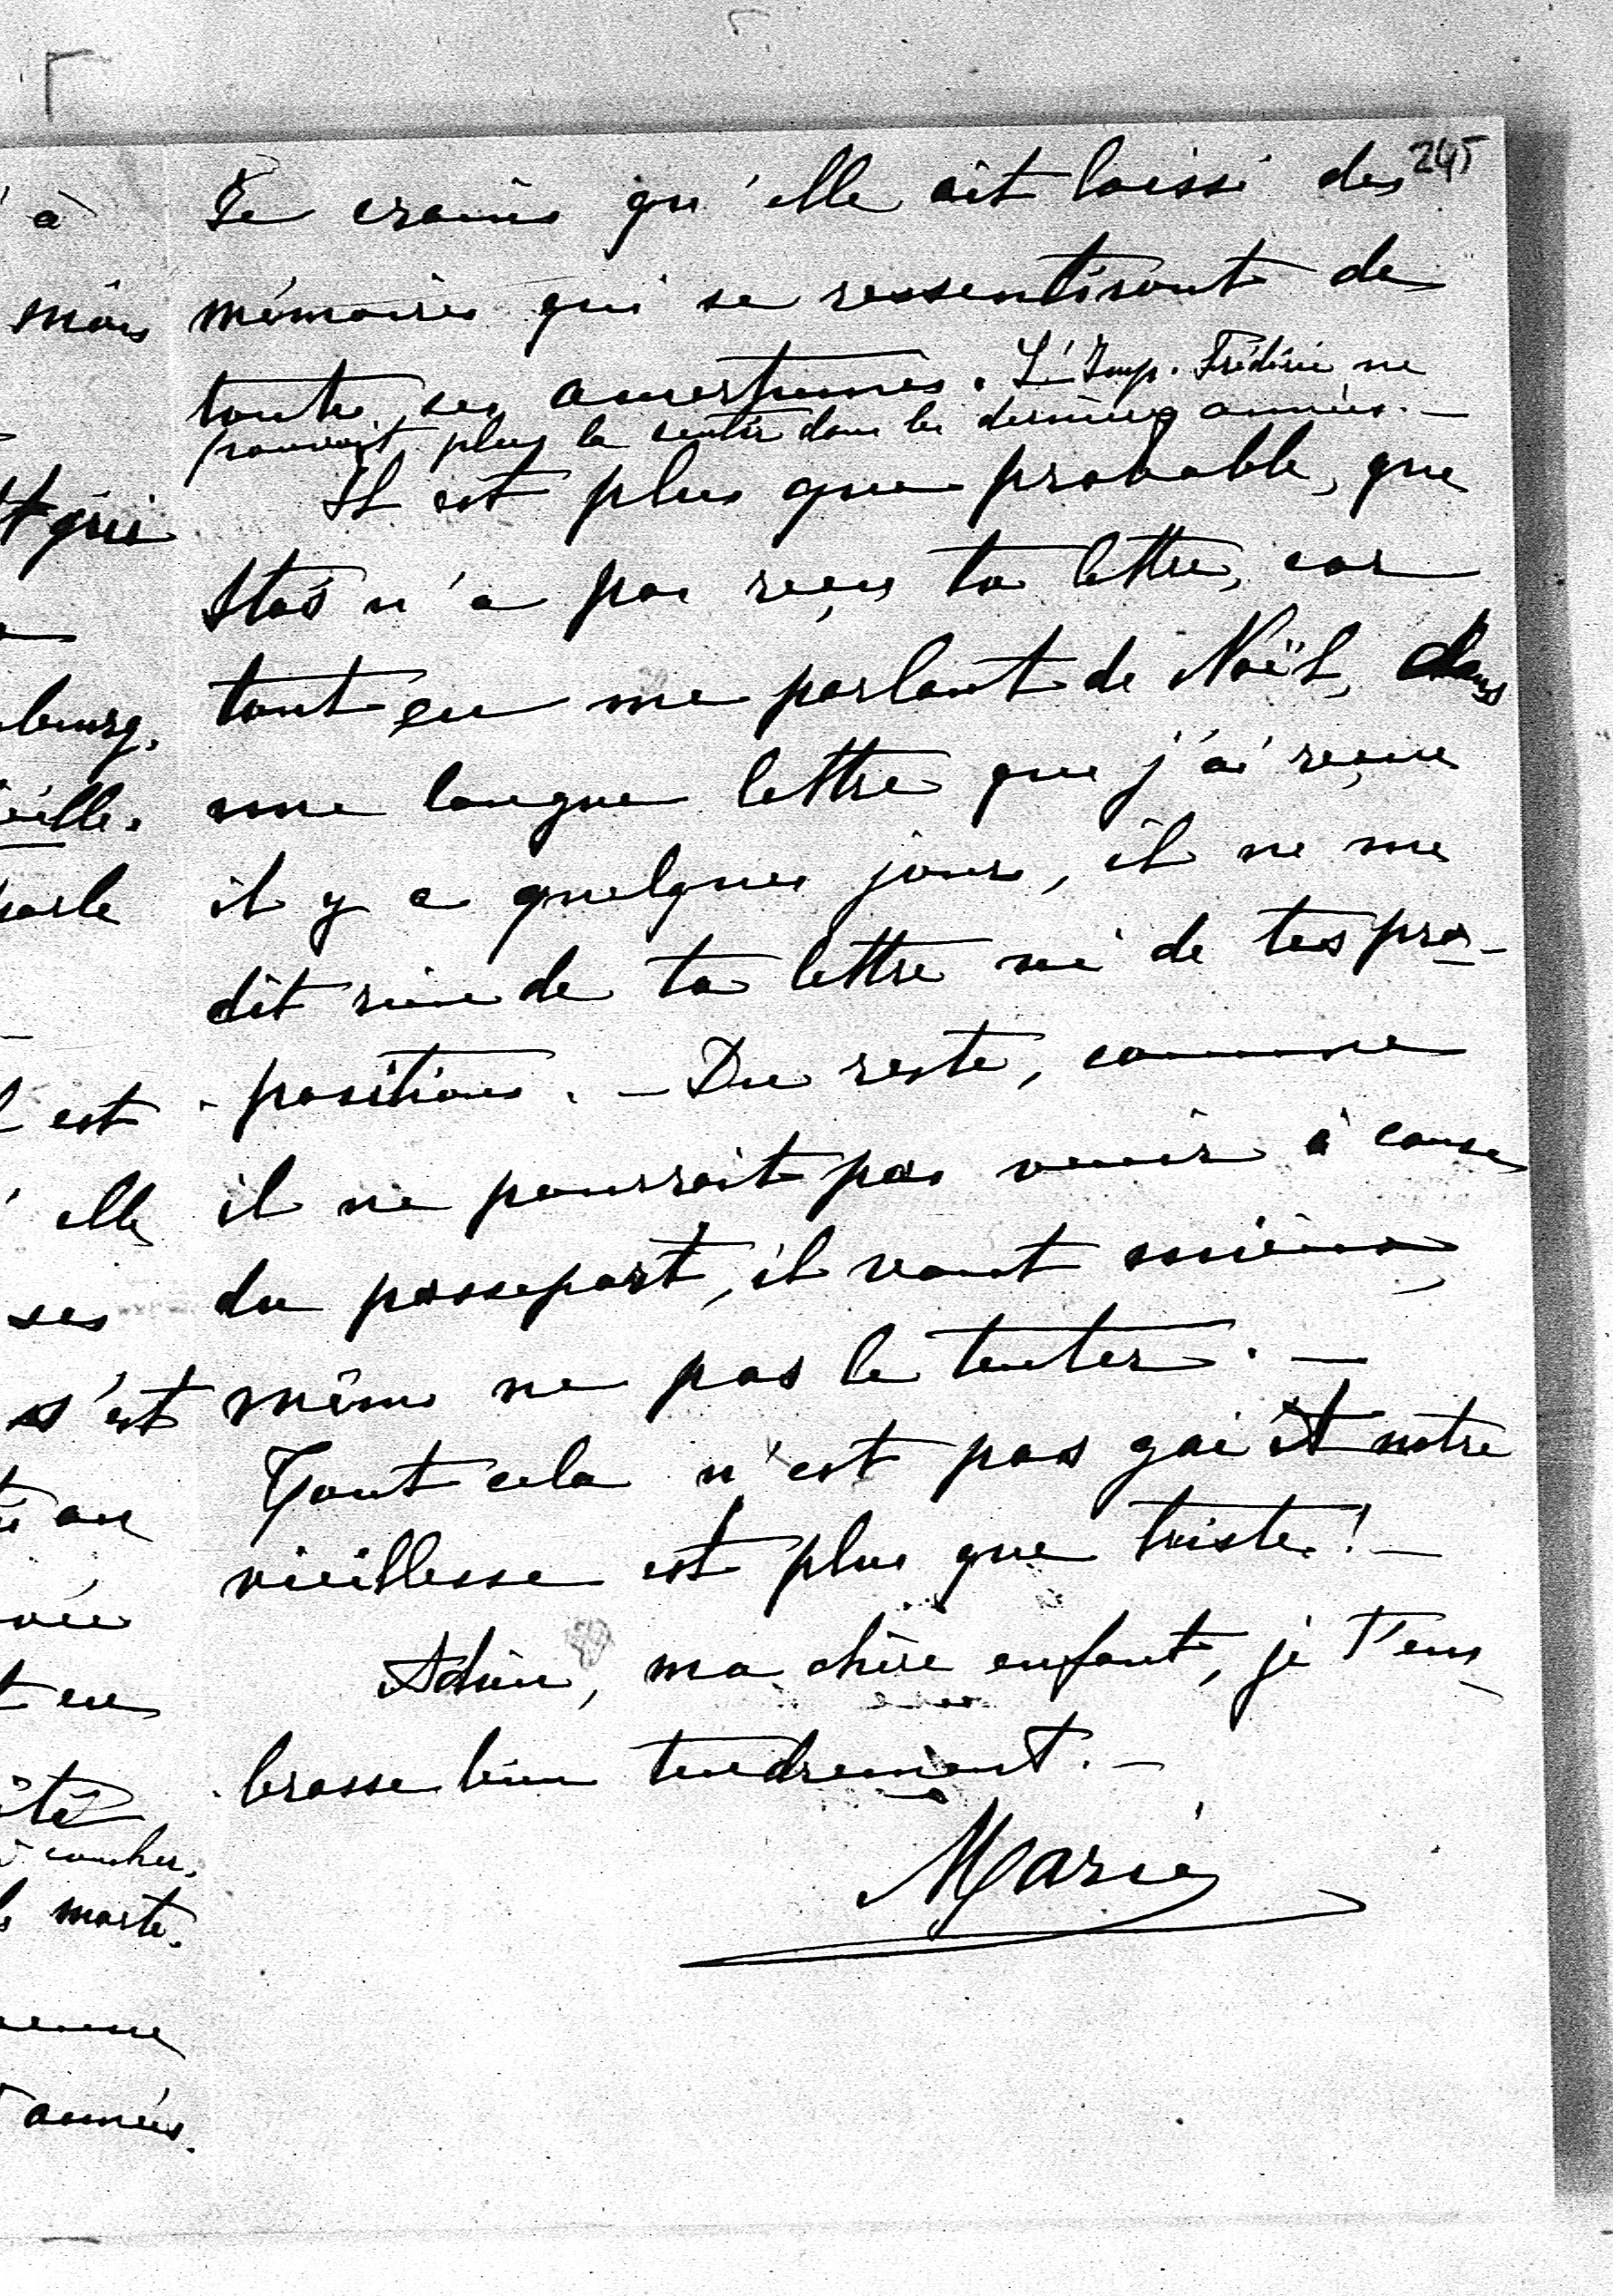 245
Je crains qu'elle ait laissé des
mémoires qui se ressentiront de
toutes ses amertumes. L'Imp. Frédéric ne
pouvait plus la sentir dans les dernières années. —
Il est plus que probable, que
Stas n'a pas reçu ta lettre, car
tout en me parlant de Noël, dans
une longue lettre que j'ai reçue
il y a quelques jours, il ne me
dit rien de ta lettre ni de tes pro-
positions. — Du reste, comme
il ne pourrait pas venir à cause
du passeport, il vaut mieux
même ne pas le tenter. —
Tout cela n'est pas gai et notre
vieillesse est plus que triste! —
Adieu, ma chère enfant, je t'em-
brasse bien tendrement. —
Marie
à
mois
qui
bourg.
eille.
parle
est
elle
ses
s'est
en
coucher.
morte.
années.